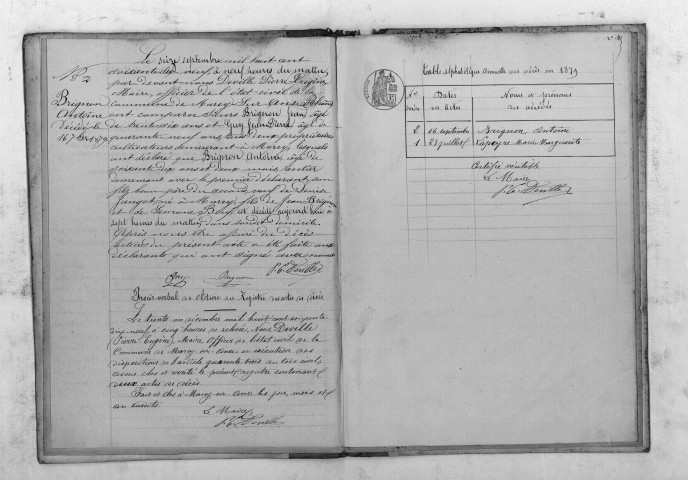 N° 2
Brignon
Antoine
décédé le
16 7bre 1879
Le seize septembre mil huit cent
soixante dix neuf, à neuf heures du matin,
par devant nous Deville Pierre Eugène
Maire, officier de l'état civil de la
commune de Marcy sur Anse, Rhône
ont comparu Sieurs Brignon Jean âgé
de trente six ans et Guy Jean Pierre âgé de
quarante neuf ans, tous deux propriétaires
cultivateurs demeurant à Marcy, lesquels
ont déclaré que Brignon Antoine âgé de
soixante dix ans et deux mois, rentier
demeurant avec le premier déclarant, son
fils, beau-père du second, veuf de Denise
né à Marcy, fils de Jean Brignon
et de est décédé aujourd'hui à
sept heures du matin, dans son dit domicile.
Après nous être assuré du décès
lecture du présent acte a été faite aux
déclarants qui ont signé avec nous
P. E. Deville
Guy Brignon
Procès-verbal de clôture du Registre des actes de décès
Le trente un décembre mil huit cent soixante
dix neuf à cinq heures du soir, Nous Deville
Pierre Eugène, Maire, officier de l'état civil de la
Commune de Marcy sur Anse, en exécution des
dispositions de l'article quarante trois du code civil,
avons clos et arrêté le présent registre contenant
deux actes de décès.
Fait et clos à Marcy sur Anse les jour, mois et
an susdits.
Le Maire
P. E. Deville
Table alphabétique Annuelle des décès en 1879
Nos Dates Noms et prénoms
des actes des décédés
2 16 septembre Brignon Antoine
1 23 juillet Marie Marguerite
Certifié véritable
Le Maire
P. E. Deville